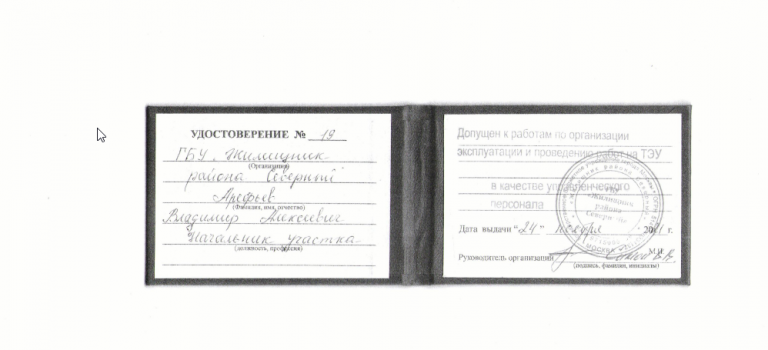 УДОСТОВЕРЕНИЕ № 19
ГБУ "Жилищник
(Организация)
района Северный"
Арефьев
(Фамилия, имя, отчество)
Владимир Алексеевич
Начальник участка
(должность, профессия)
Допущен к работам по организации
эксплуатации и проведению работ на ТЭУ
в качестве управленческого
персонала
Дата выдачи "24" 20 г.
М.П.
Руководитель организации
(подпись, фамилия, инициалы)
ГБУ
«Жилищник
района
Северный»
МОСКВА